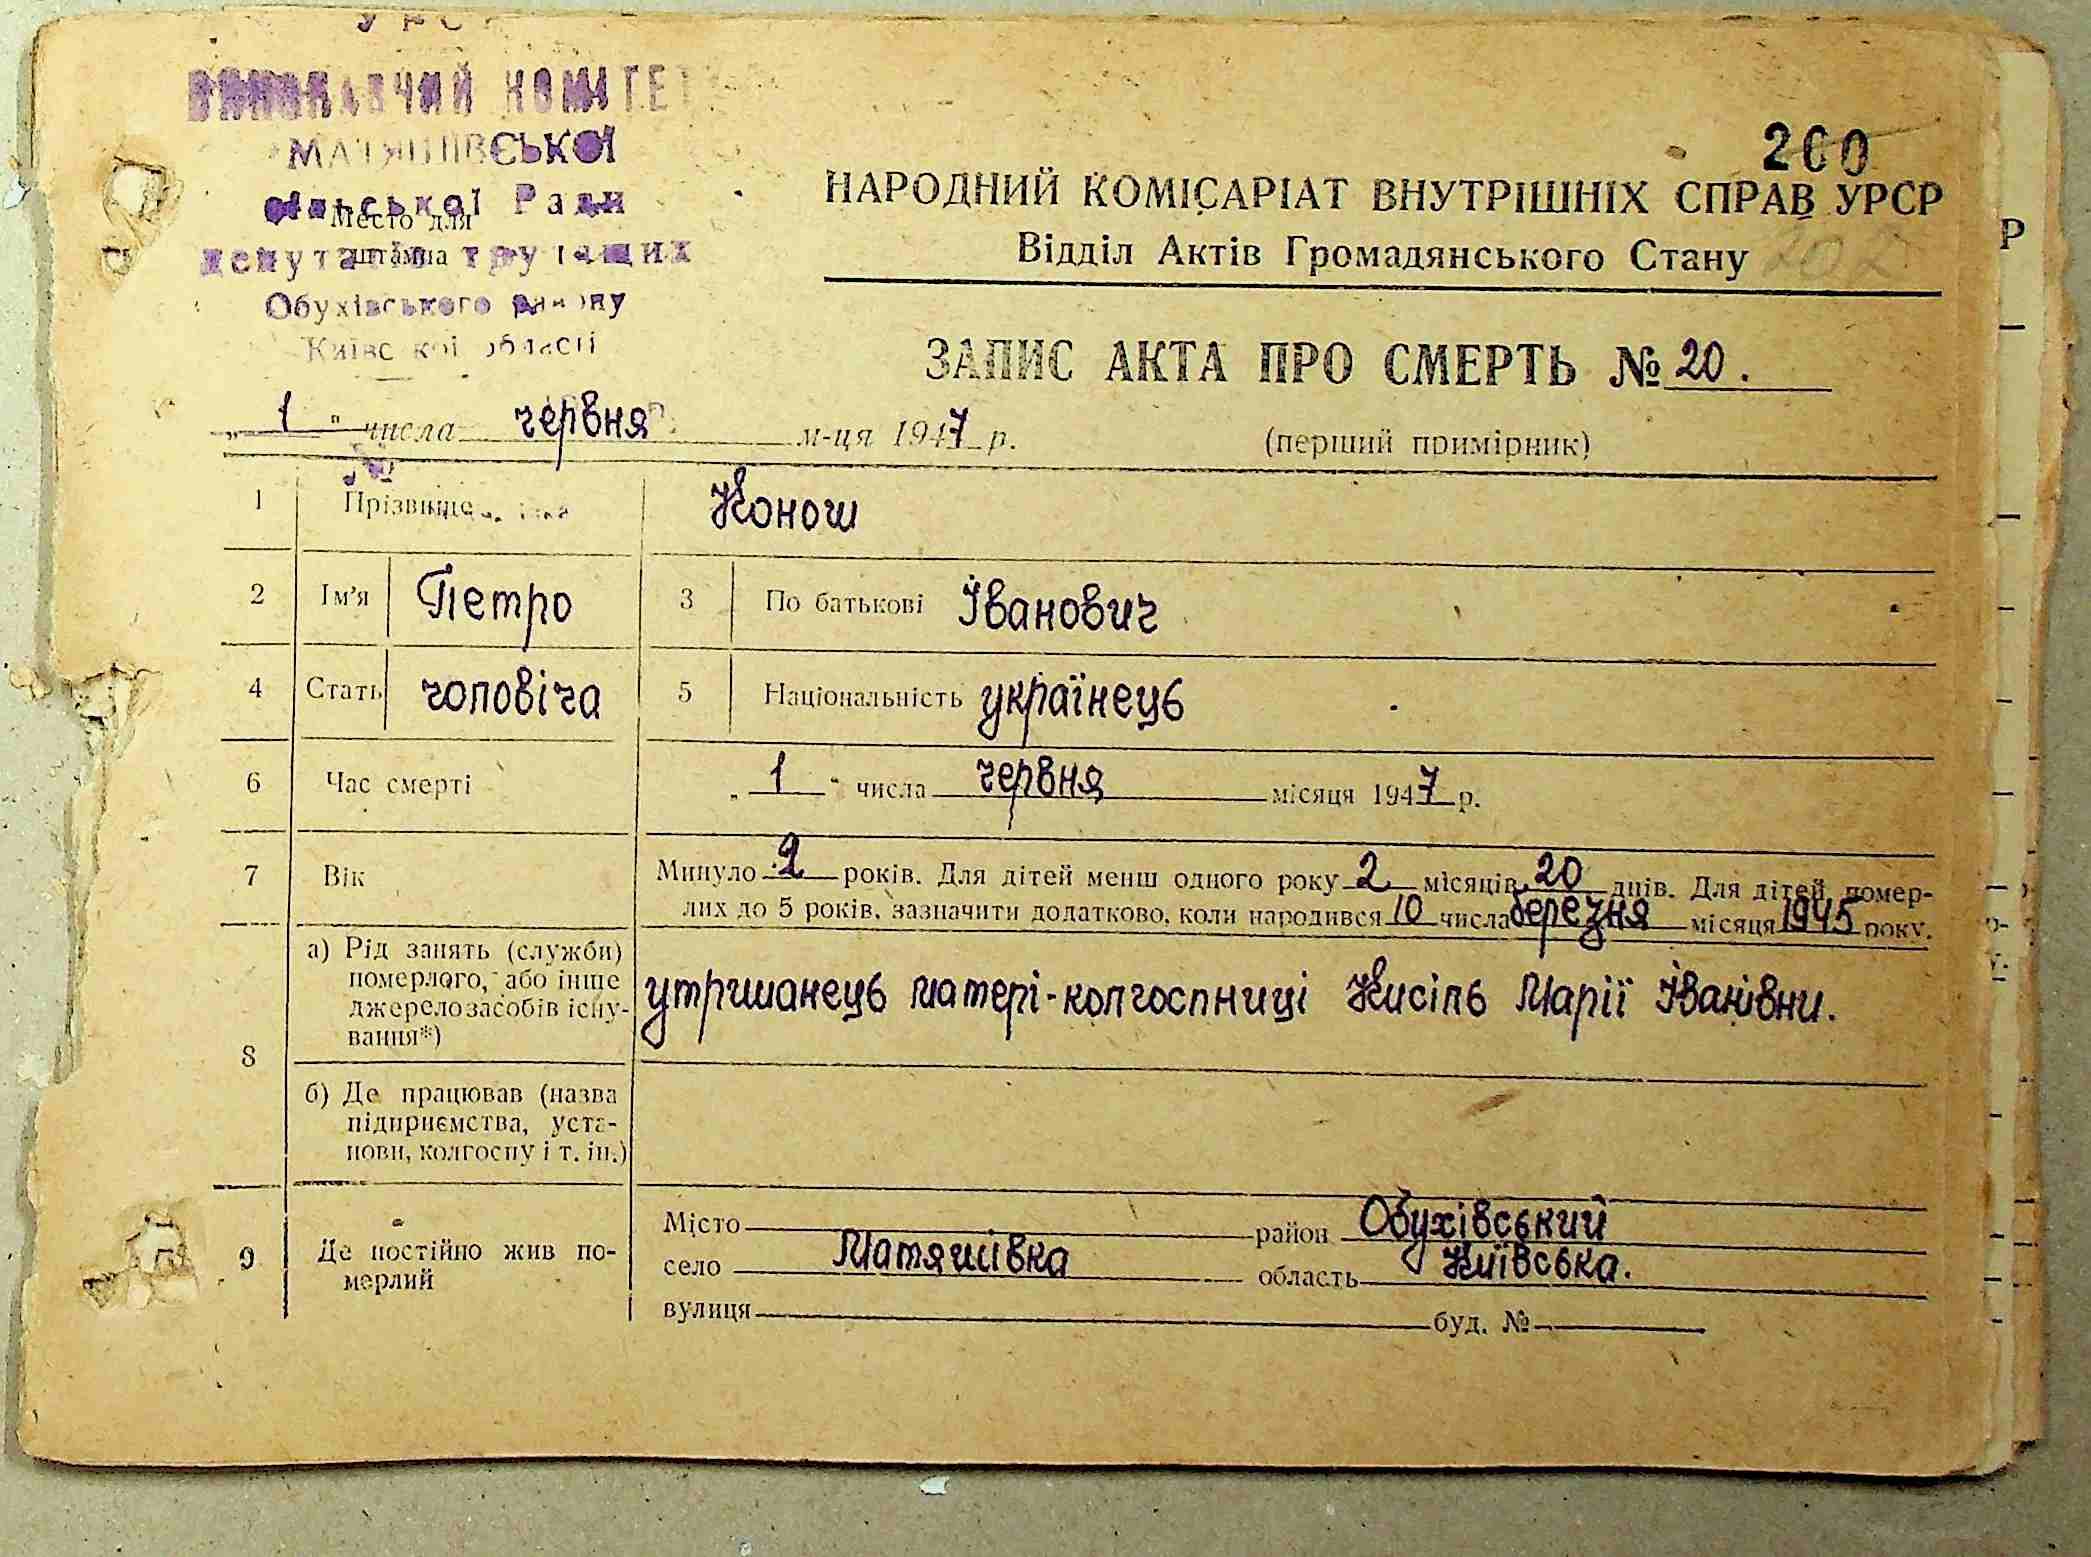 УРСР
ВИКОНАВЧИЙ КОМІТЕТ
МАТЯШІВСЬКОЇ
сільської Ради
Место для
штампа
депутатів трудящих
Обухівського району
Київської області
200
НАРОДНИЙ КОМІСАРІАТ ВНУТРІШНІХ СПРАВ УРСР
Відділ Актів Громадянського Стану
ЗАПИС АКТА ПРО СМЕРТЬ № 20.
„ 1 " числа червня м-ця 1947 р.
(перший примірник)
1 Прізвище Конош
2 Ім'я Петро 3 По батькові Іванович
4 Стать чоловіча 5 Національність українець
6 Час смерті „ 1 " числа червня місяця 1947 р.
7 Вік Минуло 2 років. Для дітей менш одного року 2 місяців 20 днів. Для дітей, помер-
лих до 5 років, зазначити додатково, коли народився 10 числа березня місяця 1945 року.
8 а) Рід занять (служби)
померлого, або інше
джерело засобів існу-
вання*)
утришанець матері-колгоспниці Кисіль Марії Іванівни.
б) Де працював (назва
підприємства, уста-
нови, колгоспу і т. ін.)
9 Де постійно жив по-
мерлий
Місто район Обухівський
село Матяшівка область Київська.
вулиця буд. №